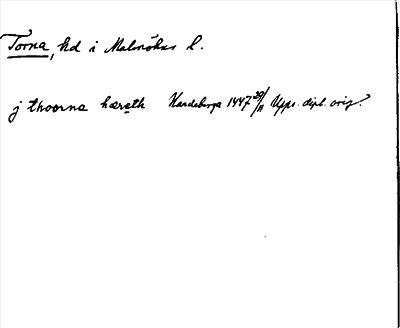 Torna, hd i Malmöhus l.
j thoorna hæræth Hardeberga 1447 29/11 Upps. dipl. orig.